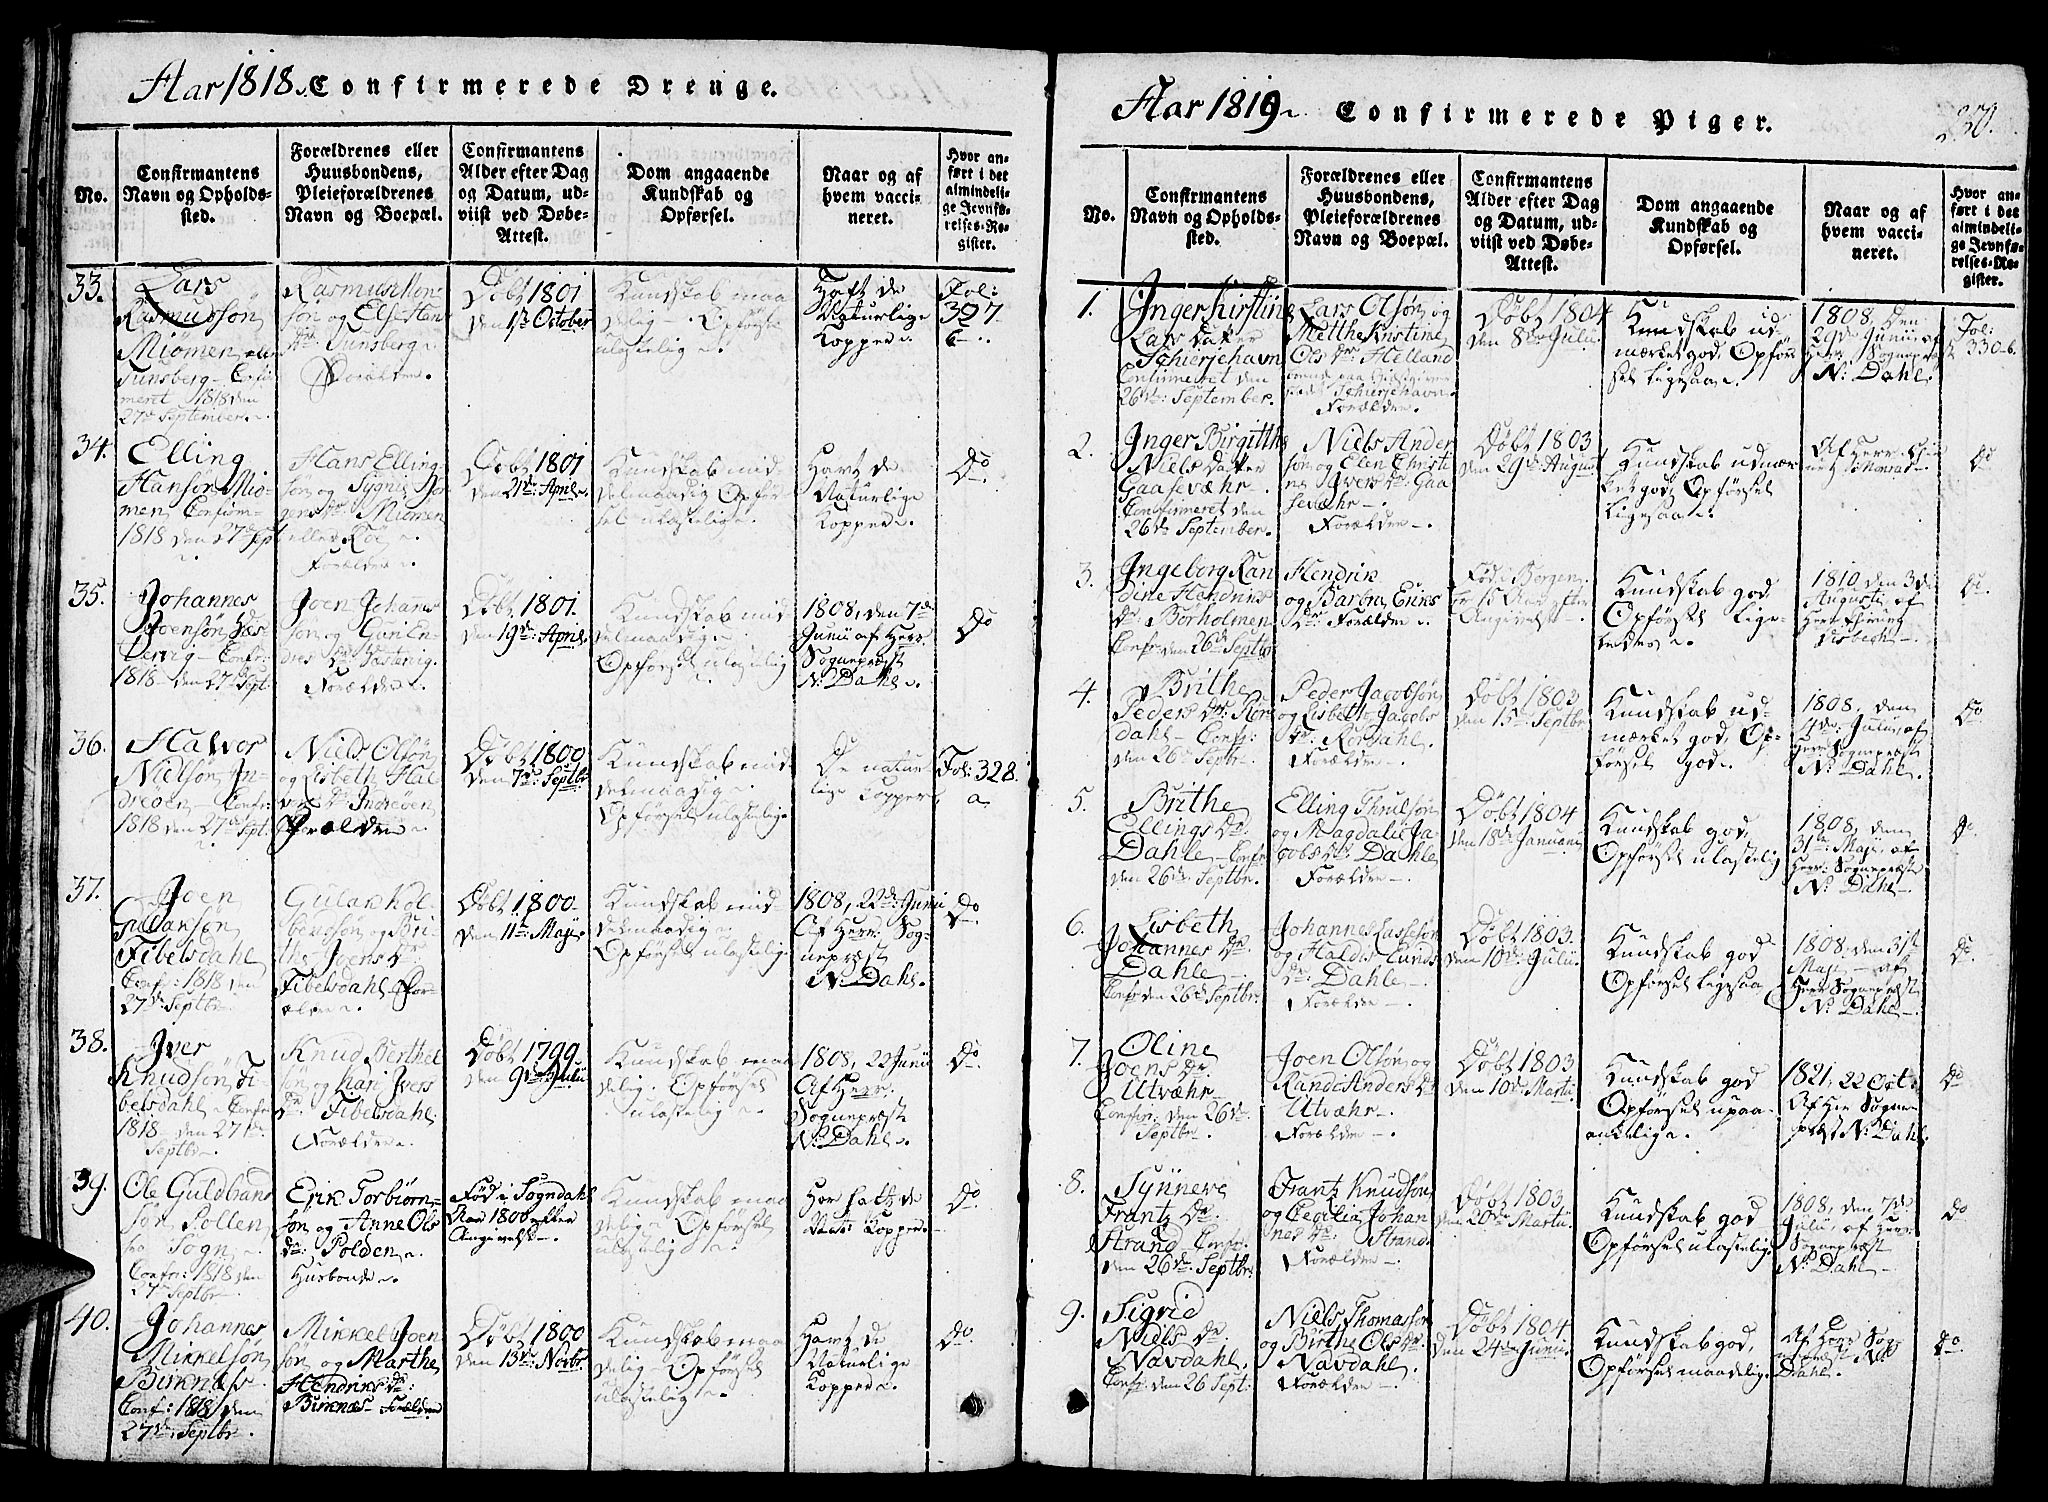 Aar 1818. Confirmerede Drenge.
No.
Confirmantens
Navn og Opholds-
sted.
Forældrenes eller
Huusbondens,
Pleieforældrenes
Navn og Boepæl.
Confirmantens
Alder efter Dag
og Datum, ud-
viist ved Døbe-
Attest.
Dom angaaende
Kundskab og
Opførsel.
Naar og af
hvem vacci-
neret.
Hvor an-
ført i det
almindeli-
ge Jevnfø-
relses-Re-
gister.
33.
Lars
Rasmudsön
Miömen eller
Tunsberg - Confir
meret 1818 den
27de September
Rasmus
sön og
Tunsberg
Forældre.
Döbt 1801
den 1ste October
Kundskab maa
delig - Opförsel
ulastelig
Haft de
Naturlige
Kopper
Fol:
327
b.
34.
Elling
Hansön Miö-
men, Confirm-
1818 den 27de Sept
Hans Elling-
sön og Sygni
Miömen
eller
Forældre
Döbt 1801
den 21de April
Kundskab mid-
delmaadig Opför-
sel ulastelig
Havt de
Naturlige
Kopper
Do
35.
Johannes
Joensön Væs-
tervig - Confr:
1818 - den 27de Sept:
Joen Johans
sön og Guri En-
dres Dr Væstervig
Forældre
Döbt 1801.
den 19de April
Kundskab mid-
delmaadig
Opförsel ulastelig
1808, den 7de
Junii af Herr
Sognepræst
N: Dahl
Do
36.
Halvor
Nielsön In-
dreöen - Confr:
1818 den 27de Sept:
Niels Olsön
og Lisbeth Hal
vors Dr Indreöen
Forældre
Döbt 1800
den 7de Septbr
Kundskab mid-
delmaadig
Opförsel ulastelig
De natur
lige Kopper
Fol: 328.
a.
37.
Joen
Gullaksön
Fibelsdahl
Confr: 1818 den
27de Septbr
Gulak Kol
bensön og Bri-
the Joens Dr
Fibelsdahl For-
ældre
Döbt 1800
den 11te Maji
Kundskab mid-
delmaadig
Opförsel ulastelig
1808, 22de Junii
Af Herr Sog-
nepræst
N: Dahl.
Do
38.
Iver
Knudsön Fi-
belsdahl Confr:
1818 den 27de
Septbr
Knud Berthel
sön og Kari Ivers
Dr Fibelsdahl
Forældre
Döbt 1799
den 9de Julii
Kundskab maa
delig. Opförsel
ulastelig
1808, 22 Junii
Af Herr
Sognepræst
N: Dahl
Do
39.
Ole Guldbrans
sön Pollen
fra Sogn
Confr: 1818 den
27de Septbr
Erik Torbiörn-
sön og Anne Ols
dr: Polden
Husbonde
Född i Sogndahl
Aar 1800 efter
Angivelse
Kundskab maa
delig Opförsel
ulastelig
Har hatt de
Nat: Kopper
Do
40.
Johannes
Mikkelsön
Birknæs
Confr: 1818 den
27de Septbr
Mikkel Joen
sön og Marthe
Hendriks dr:
Birknæs Forældre
Döbt 1800
den 13de Novbr.
Kundskab maa
delig - Opförsel
ulastelig
Havt de
Naturlige
Kopper
Do
Aar 1819 Confirmerede Piger.
230.
No.
Confirmantens
Navn og Opholds-
sted.
Forældrenes eller
Huusbondens,
Pleieforældrenes
Navn og Boepæl.
Confirmantens
Alder efter Dag
og Datum, ud-
viist ved Døbe-
Attest.
Dom angaaende
Kundskab og
Opførsel.
Naar og af
hvem vacci-
neret.
Hvor an-
ført i det
almindeli-
ge Jevnfø-
relses-Re-
gister.
1.
Inger Kirstine
Lars Datter
Schierjehavn
Confirmeret den
26de September.
Lars Olsön og
Metthe Kristine
Ols dr Helland
Schierjehavn
Forældre.
Döbt 1804
den 8de Julii
Kundskab ud-
mærket god, Opför
sel ligesaa
1808, den
29de Junii, af
Herr Sognepræst
N: Dahl.
Fol:
330-b.
2.
Inger Birgitthe
Niels Datter
Gaasevæhr
Confirmeret den
26de September.
Niels Ander
sön og Elen Christi
ne Ivers Dr Gaa
sevæhr
Forældre
Döbt 1803
den 29de August
Kundskab udmær
ket god, Opförsel
ligesaa
Af Herr
Monrad
Do
3.
Ingeborg Kan
dine Hendriks
dr: Börholmen
Confr: den 26de Septbr
Hendrik
og Barbra Eriks
Dr: Forældre
Föd i Bergen
15 Aar efter
Angivelse
Kundskab god
Opförsel lige-
ledes
1810 den 3de
Augusti af
Herr
Lisbech
Do
4.
Brithe
Peders Dr: Rör-
dahl - Confr:
den 26de Septbr
Peder Jacobsön
og Lisbeth Jacobs
dr: Rördahl.
Forældre
Döbt 1803
den 15de Septbr
Kundskab ud-
mærket god, Op-
försel god
1808, den
4de Julii, af
Herr Sognepræst
N: Dahl.
Do
5.
Brithe
Ellings Dr:
Dahle - Confr:
den 26de Septbr.
Elling Thrulsön
og Magdali Ja
cobs dr: Dahle
Forældre
Döbt 1804
den 18de Januarii
Kundskab god,
Opförsel ulastelig
1808, den
31te Maji, af
Herr Sognepræst
N: Dahl
Do
6.
Lisbeth
Johannes Dr
Dahle
Confr den 26de Septbr.
Johannes Lassesön
og Haldis Eiunds
dr: Dahle
Forældre
Döbt 1803.
den 10de Julii.
Kundskab god
Opförsel ligesaa
1808, den 31te
Maji - af
Herr Sognepræst
N: Dahl
Do
7.
Oline
Joens Dr:
Utvæhr
Confr: den 26de
Septbr.
Joen Olsön og
Randi Anders Dr
Utvæhr
Forældre
Döbt 1803
den 10de Martii
Kundskab god
Opförsel upaa-
ankelig
1821, 22 Oct:
Af Her Sogne-
præst N: Dahl
Do
8.
Synneve
Frantz Dr
Strand Confr:
den 26de Septbr:
Frantz Knudsön
og Cecilia Johan
nes dr: Strand
Forældre
Döbt 1803.
den 20de Martii
Kundskab god
Opförsel ulastelig
1808, den 7de
Julii, af Herr
Sognepræst
N: Dahl
Do
9.
Sigrid
Niels Dr
Navdahl
Confr: den 26 Sept:
Niels Thomassön
og Birthe Ols dr:
Navdahl
Forældre
Döbt 1804.
den 24de Junii
Kundskab god,
Opförsel maadelig
Af Herr Sog
nepræst Nils
Dahl.
do.